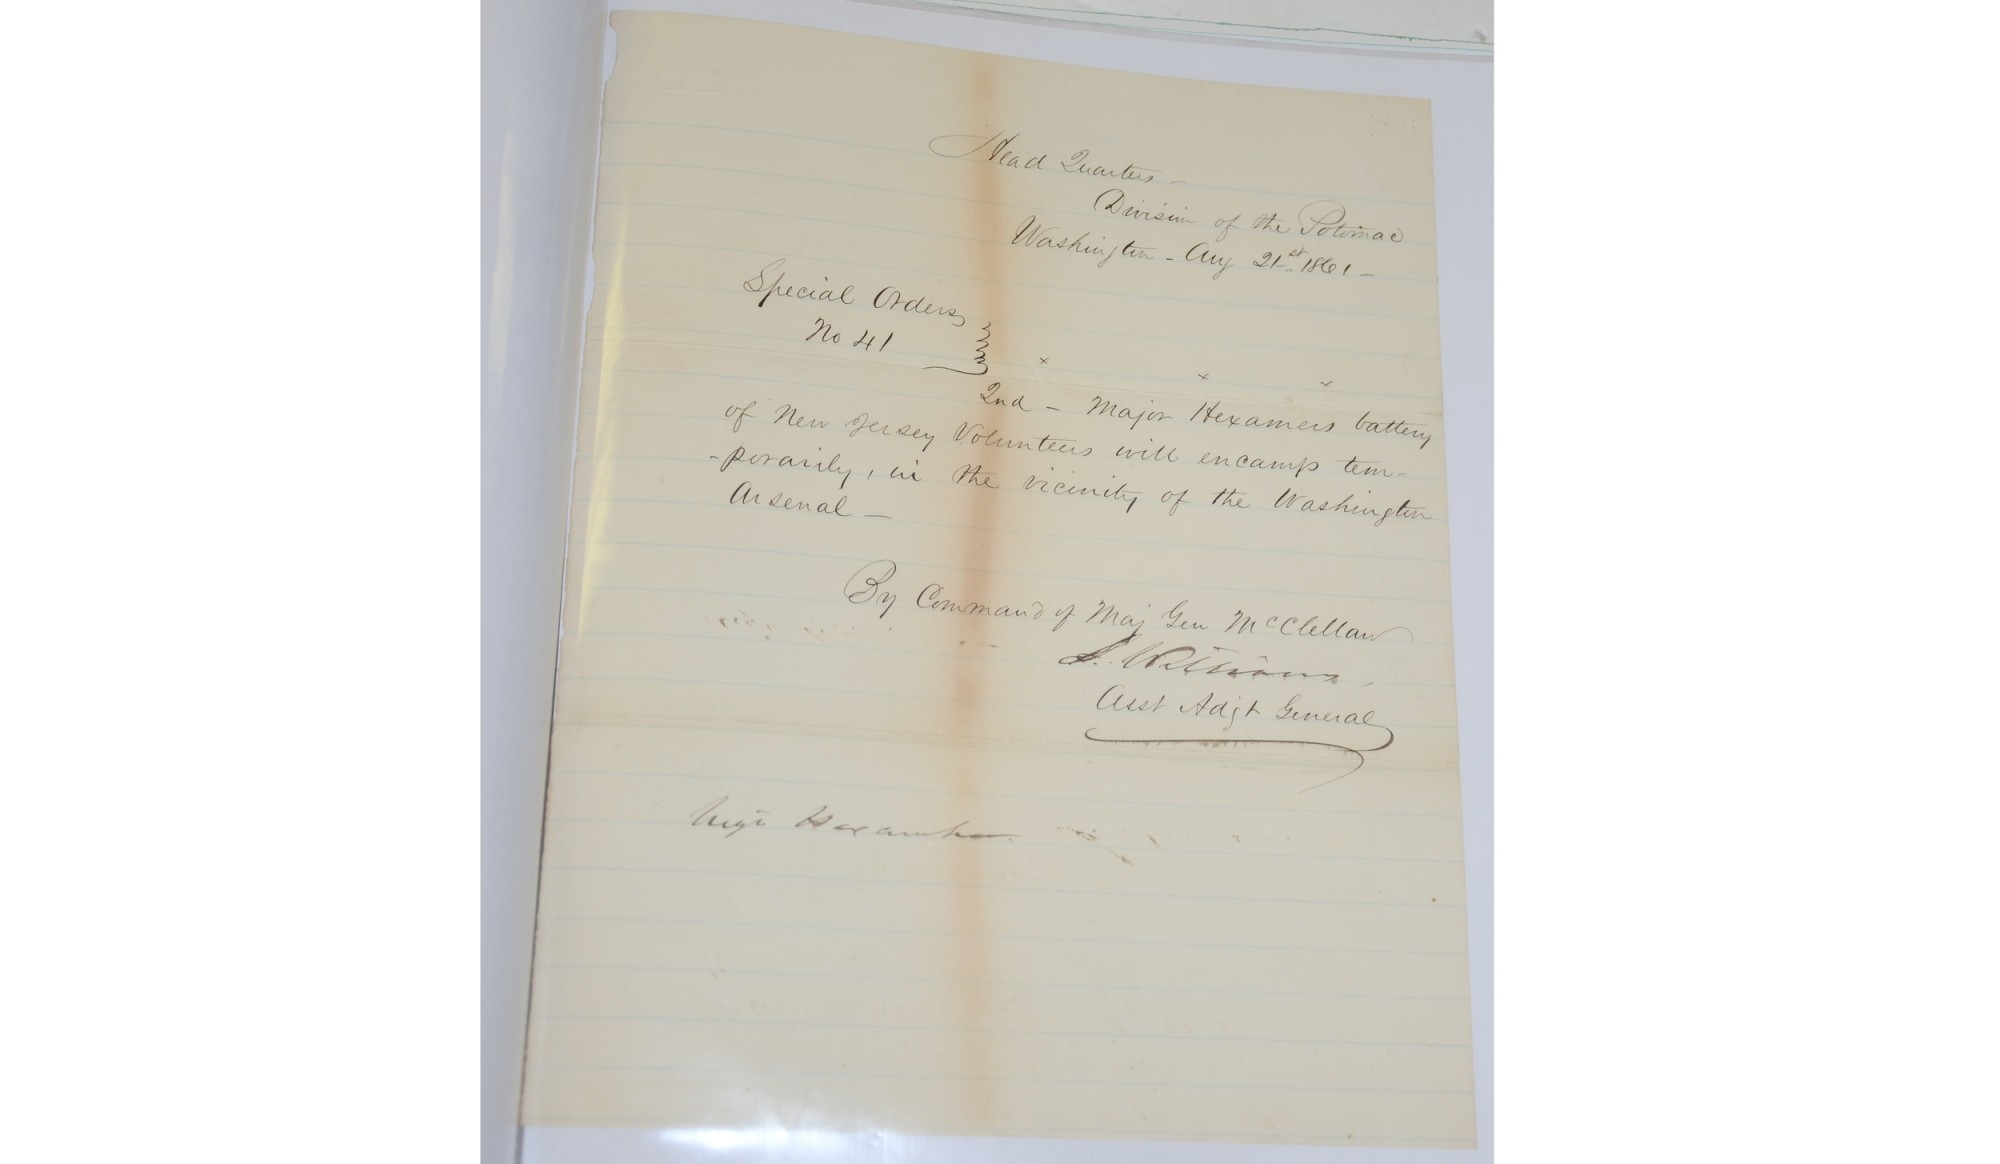 Head Quarters -
Division of the Potomac
Washington - Aug 21st 1861 -
Special Orders
No 41
x x x
2nd - Major Hexamers battery
of New Jersey Volunteers will encamp tem-
-porarily, in the vicinity of the Washington
Arsenal -
By Command of Maj Gen McClellan
S. Williams
Asst Adjt General